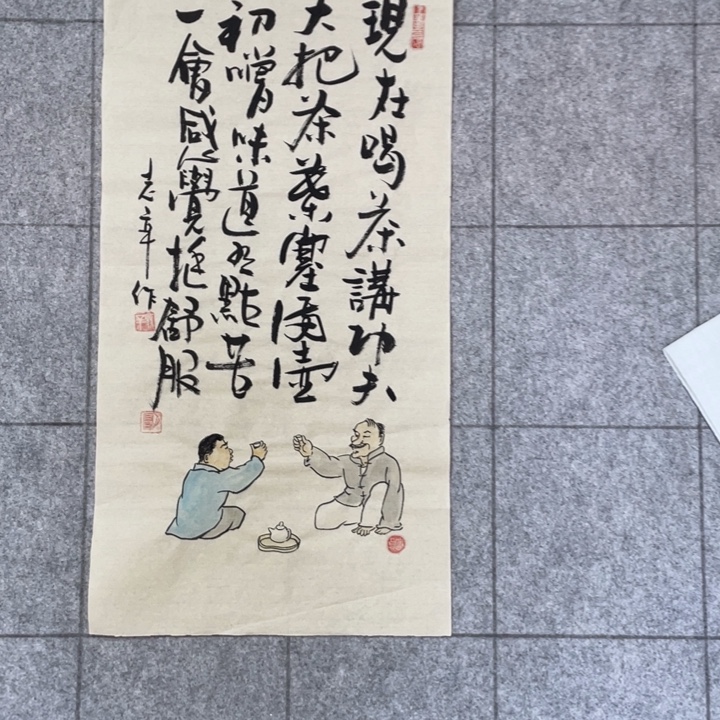 現在喝茶講功夫
大把茶葉塞滿壺
初嚐味道有點苦
一會感覺挺舒服
志章作